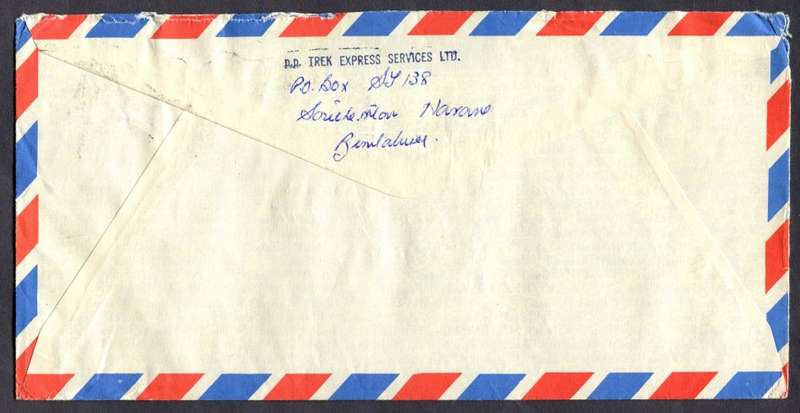 p.p. TREK EXPRESS SERVICES LTD.
P.O. Box ST 138
Southerton Harare
Zimbabwe.